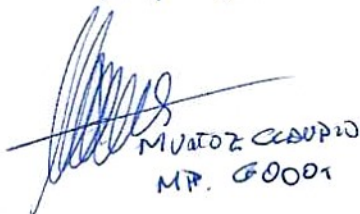 MUÑOZ CLAUDIO
MP. 60001